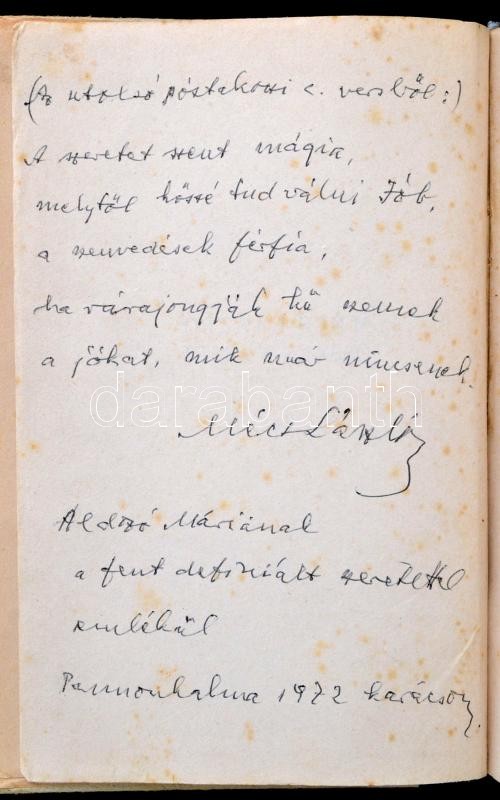 (Az utolsó póstakocsi c. versből:)
A szeretet szent mágia,
melytől hőssé tud válni Jób,
a szenvedések férfia,
ha rárajongják hű szemek
a jókat, mik már nincsenek.
darabanth
Mécs László
Aldozó Máriának
a fent definiált szeretettel
emlékül
Pannonhalma 1972 karácsony.